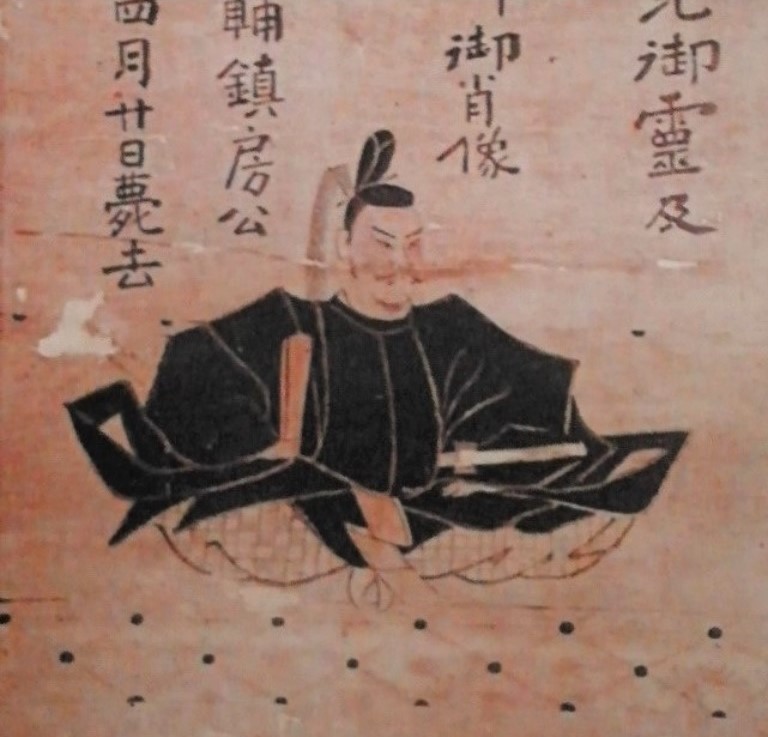 御靈及
御肖像
輔鎮房公
四月廿日薨去